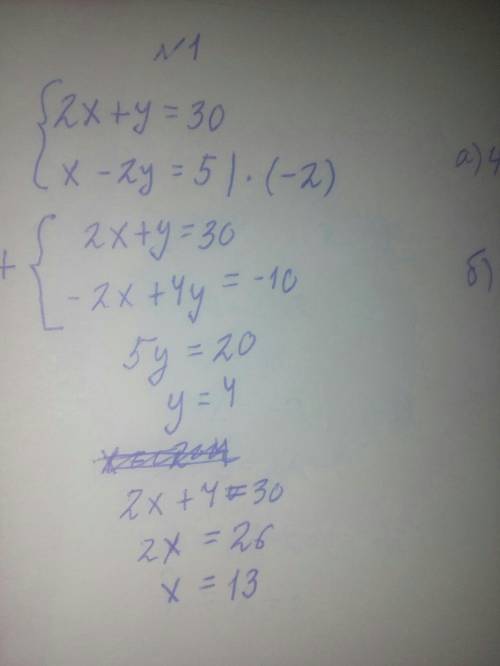 №1
2x+y=30
x-2y=5|·(-2)
а)4
+ 2x+y=30
-2x+4y=-10
б)
5y=20
y=4
2x+4=30
2x=26
x=13